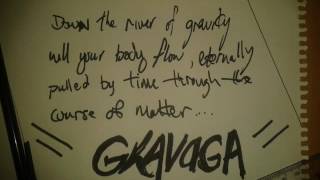 Down the river of gravity
will your body flow, eternally
pulled by time through the
course of matter...
GRAVAGA